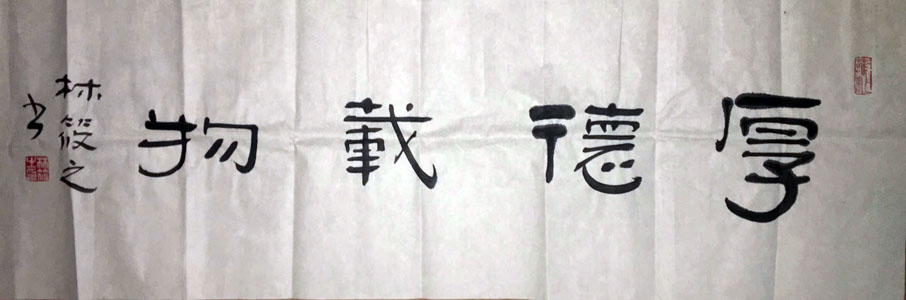 厚德載物
林筱之
书